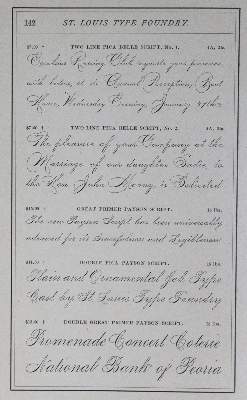 142 ST. LOUIS TYPE FOUNDRY.
TWO LINE PICA BELLE SCRIPT, No. 1.
Excelsior Racing Club requests your presence
with ladies, at its Annual Reception, Opera
House, Wednesday Evening, January 17th
TWO LINE PICA BELLE SCRIPT, No. 2.
The pleasure of your Company at the
Marriage of our daughter Sadie, to
the Hon. John is Solicited
GREAT PRIMER PAYSON SCRIPT.
The new Payson Script has been universally
admired for its Gracefulness and Legibleness
DOUBLE PICA PAYSON SCRIPT.
Plain and Ornamental Job Type
Cast by St. Louis Type Foundry
DOUBLE GREAT PRIMER PAYSON SCRIPT.
Promenade Concert Coterie
National Bank of Peoria